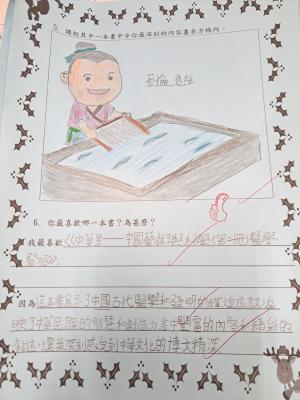 5. 請把其中一本書中令你最深刻的內容畫在方格內。
蔡倫 造紙
6. 你最喜歡哪一本書？為甚麼？
我最喜歡《中華里——中國藝術(第二冊)醫學
發明》。
因為 這本書展示了中國古代醫學和發明的輝煌成就，
映了中華民族的智慧和創造力書中豐富的內容和精彩的
讓我深刻感受到中華文化的博大精深